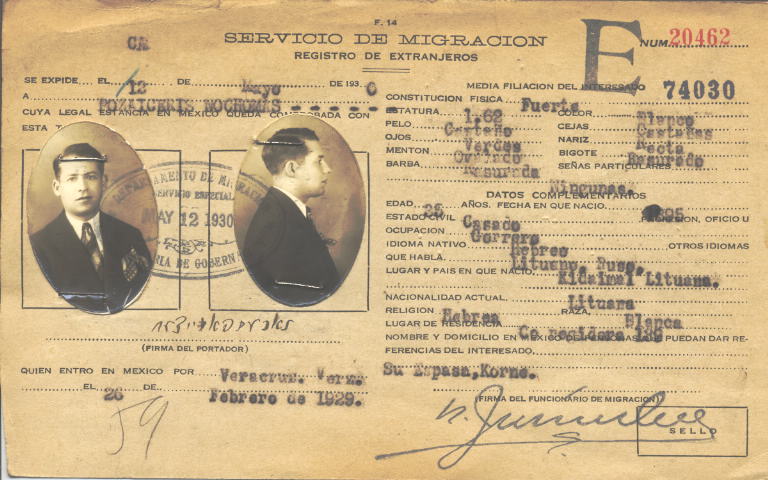 F. 14
CR
SERVICIO DE MIGRACION
REGISTRO DE EXTRANJEROS
E
NUM. 20462
74030
SE EXPIDE EL 12 DE Mayo DE 1930
A POZAICERIS NOCHOMAS
CUYA LEGAL ESTANCIA EN MEXICO QUEDA COMPROBADA CON
ESTA T
DEPARTAMENTO DE MIGRACION
SERVICIO ESPECIAL
MAY 12 1930
RIA DE GOBERN
(FIRMA DEL PORTADOR)
QUIEN ENTRO EN MEXICO POR Veracruz. Verz.
EL 26 DE Febrero de 1929.
59
MEDIA FILIACION DEL INTERESADO
CONSTITUCION FISICA Fuerte
ESTATURA 1.62 COLOR Blanco
PELO Castaño CEJAS Castañas
OJOS Verdes NARIZ Recta
MENTON Ovalado BIGOTE Rasurado
BARBA Rasurada SEÑAS PARTICULARES
Ningunas.
DATOS COMPLEMENTARIOS
EDAD AÑOS. FECHA EN QUE NACIO 895
ESTADO CIVIL Casado PROFESION, OFICIU U
OCUPACION Gorrero
IDIOMA NATIVO Hebreo OTROS IDIOMAS
QUE HABLA Lituano, Ruso.
LUGAR Y PAIS EN QUE NACIO Kidzimel Lituana.
NACIONALIDAD ACTUAL Lituana
RELIGION Hebrea RAZA Blanca
LUGAR DE RESIDENCIA
NOMBRE Y DOMICILIO EN MEXICO DE PERSONAS QUE PUEDAN DAR RE-
FERENCIAS DEL INTERESADO,
Su Espasa, Korne.
(FIRMA DEL FUNCIONARIO DE MIGRACION)
SELLO